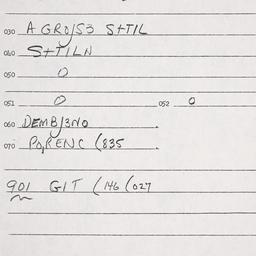 030 A GRO/S3 S+TIL
040 S+TILN
050 0
051 0 052 0
060 DEMB/3NO
070 PARENC (835
901 GIT (146 (027